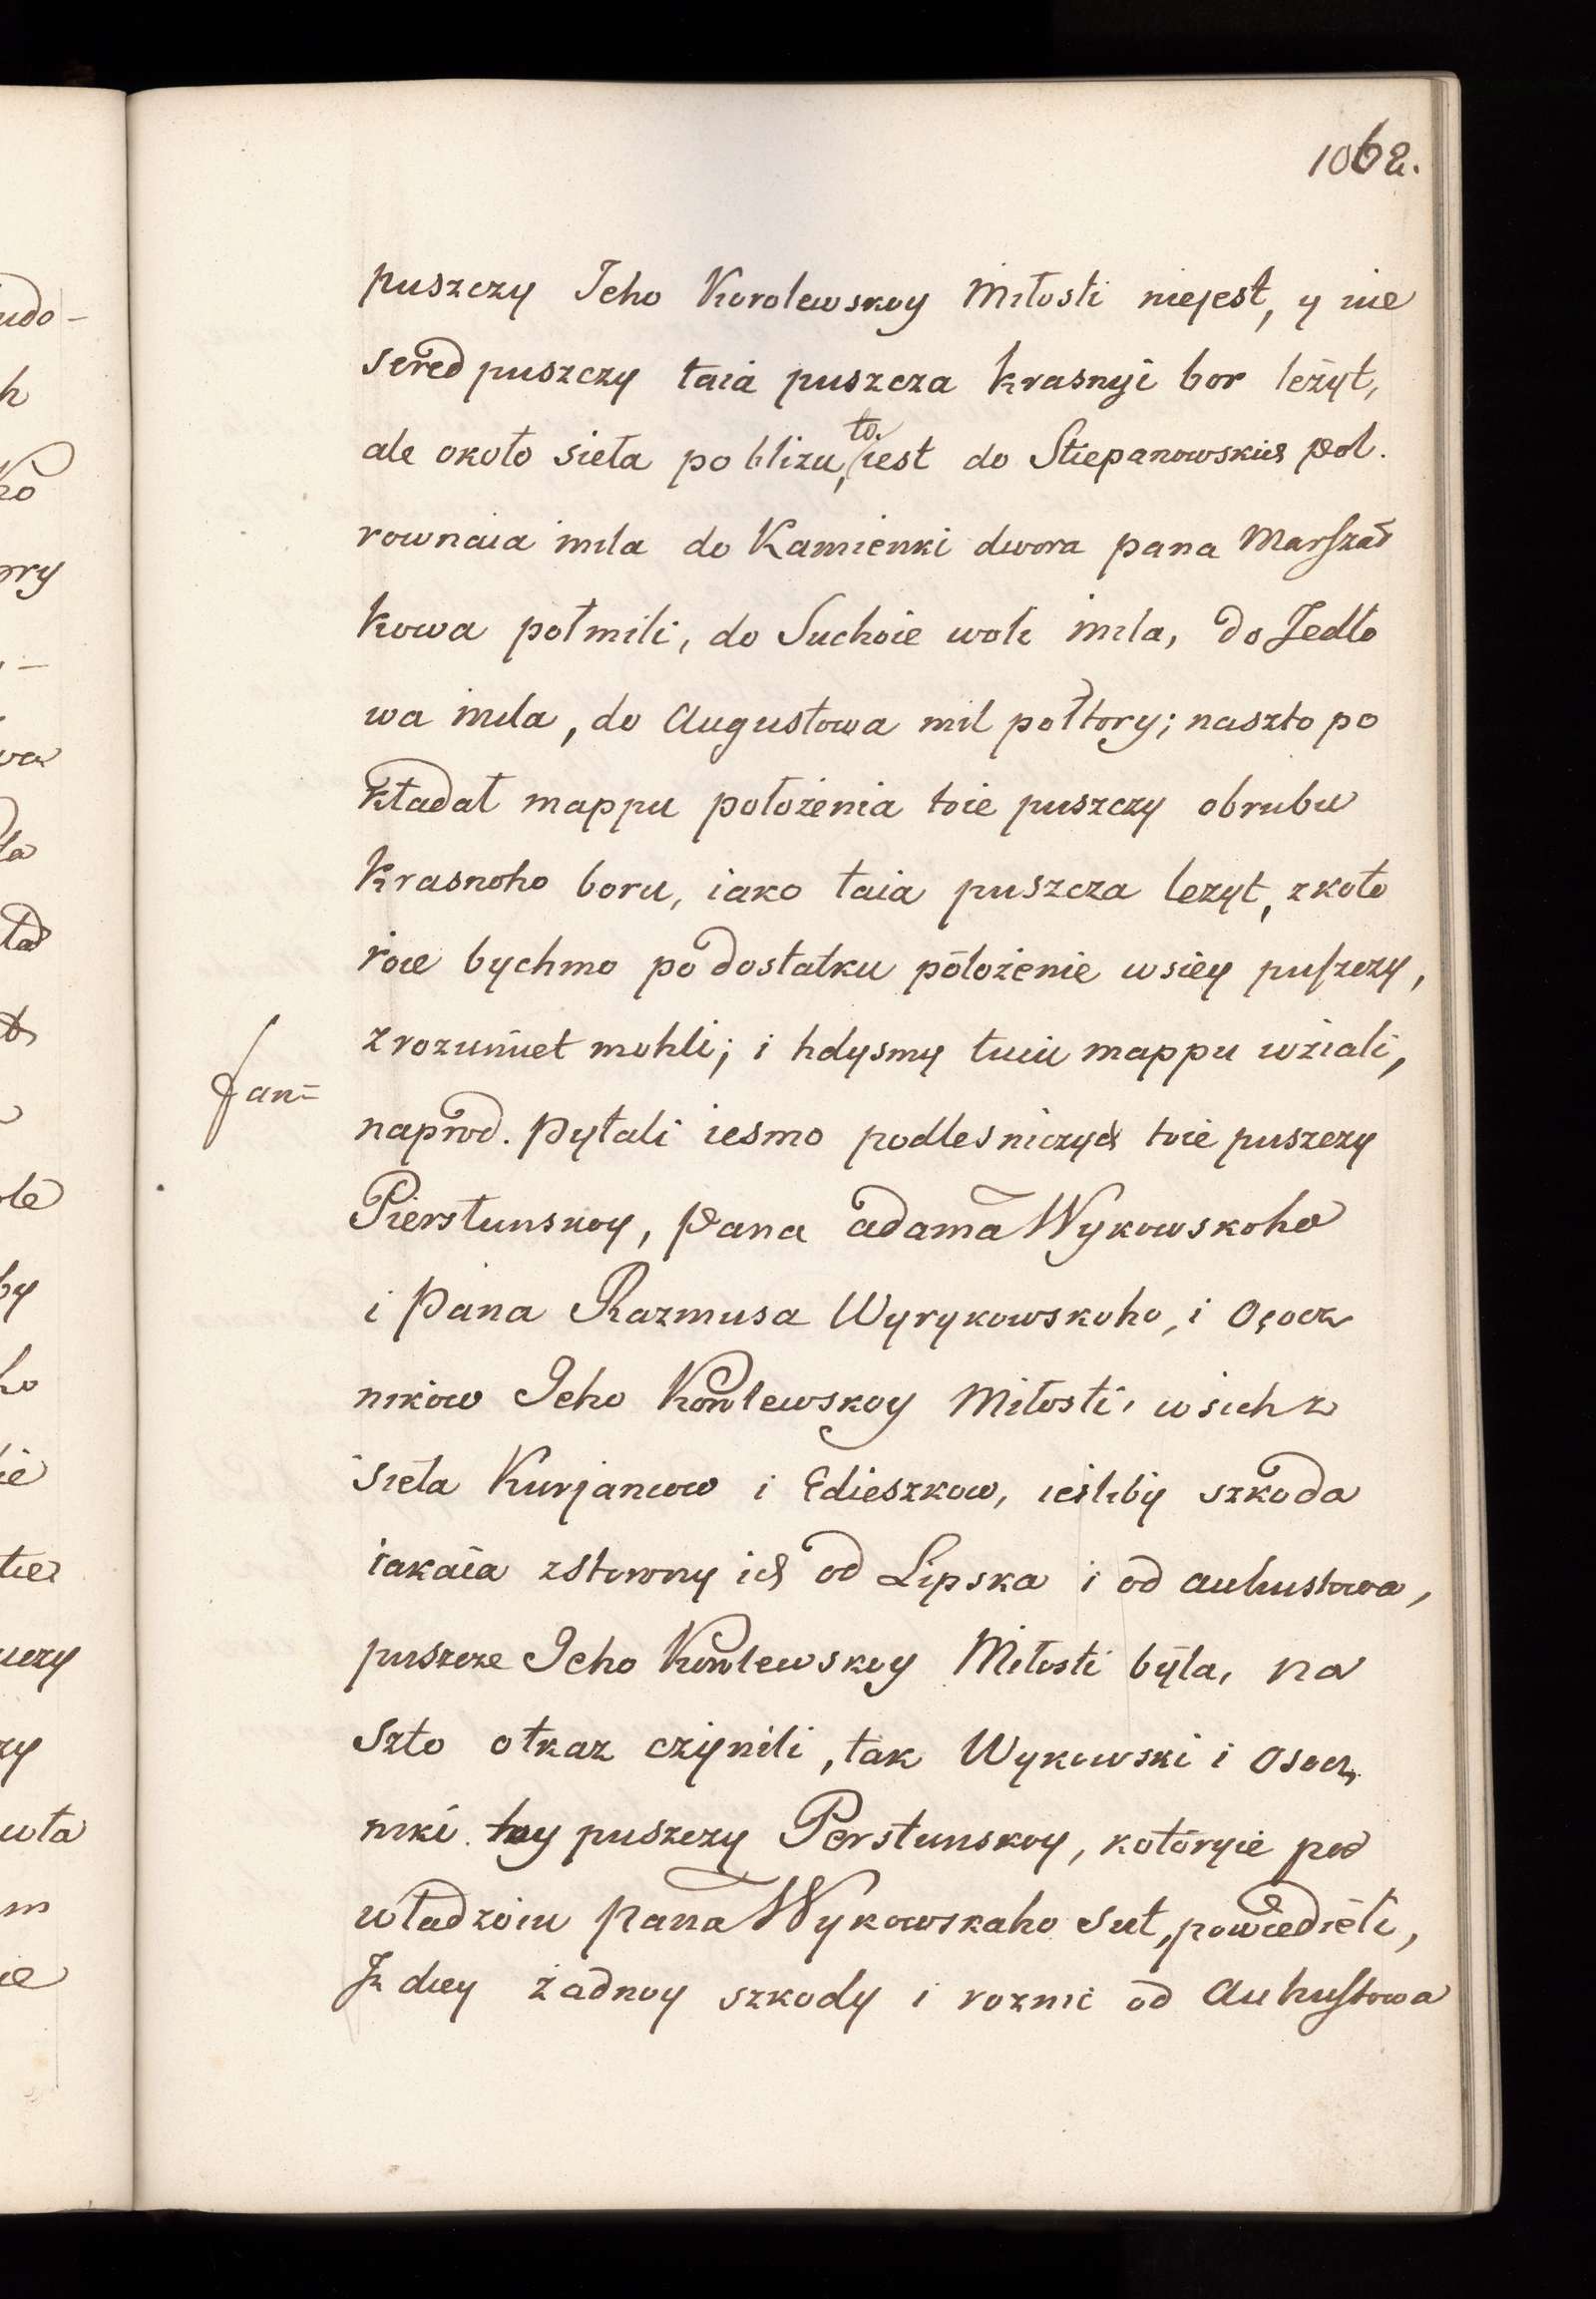 1062.
puszczy Jeho Korolewskoy Miłosti niejest, y nie
sered puszczy taia puszcza krasnyi bor leżyt,
ale około sieła po blizu, to. iest do Stiepanowskich pol.
rownaia mila do Kamienki dwora pana Marszał
kowa połmili, do Suchoie woli mila, do Jedło
wa mila, do Augustowa mil połtory; naszto po
kładał mappu położenia toie puszczy obrubu
Krasnoho boru, iako taia puszcza leżyt, z koto
roie bychmo po dostatku położenie wsiey puszczy,
zrozumiet mohli; i hdysmy tuiu mappu wziali,
naprod. pytali iesmo podlesniczych toie puszczy
Pierstunskoy, pana adama Wykowskoho
i pana Razmusa Wyrykowskoho, i Osocz
nikow Jeho Korolewskoy Miłosti, wsich z
sieła Kurjancow i Edieszkow, iesliby szkoda
iakaia zstorony ich od Lipska i od auhustowa,
puszcze Jeho Korolewskoy Miłosti była, na
szto otkaz czynili, tak Wykowski i osocz
niki toy puszczy Perstunskoy, kotoryie pod
władzoiu pana Wykowskaho sut, powiedieli,
Iż diey żadnoy szkody i roznic od Auhustowa